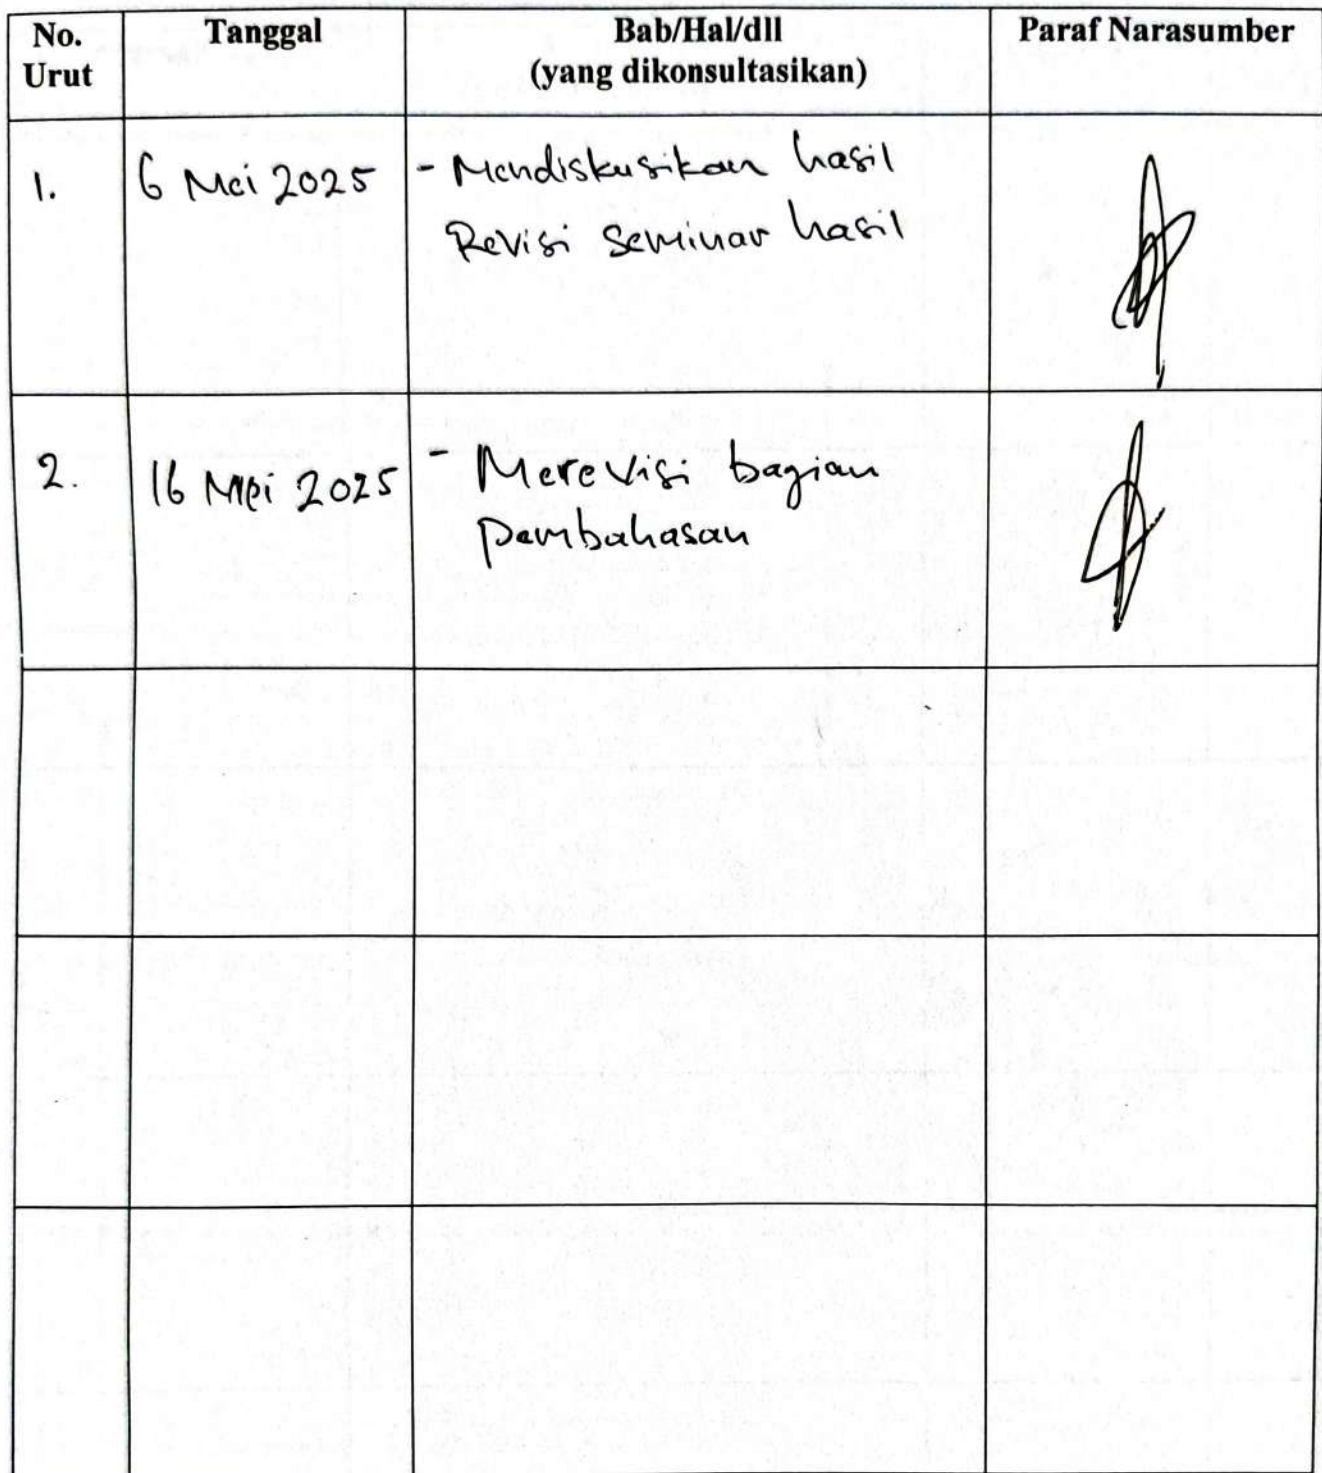 No. Urut Tanggal Bab/Hal/dll (yang dikonsultasikan) Paraf Narasumber
1. 6 Mei 2025 - Mendiskusikan hasil
Revisi Seminar hasil
2. 16 Mei 2025 - Merevisi bagian
pembahasan